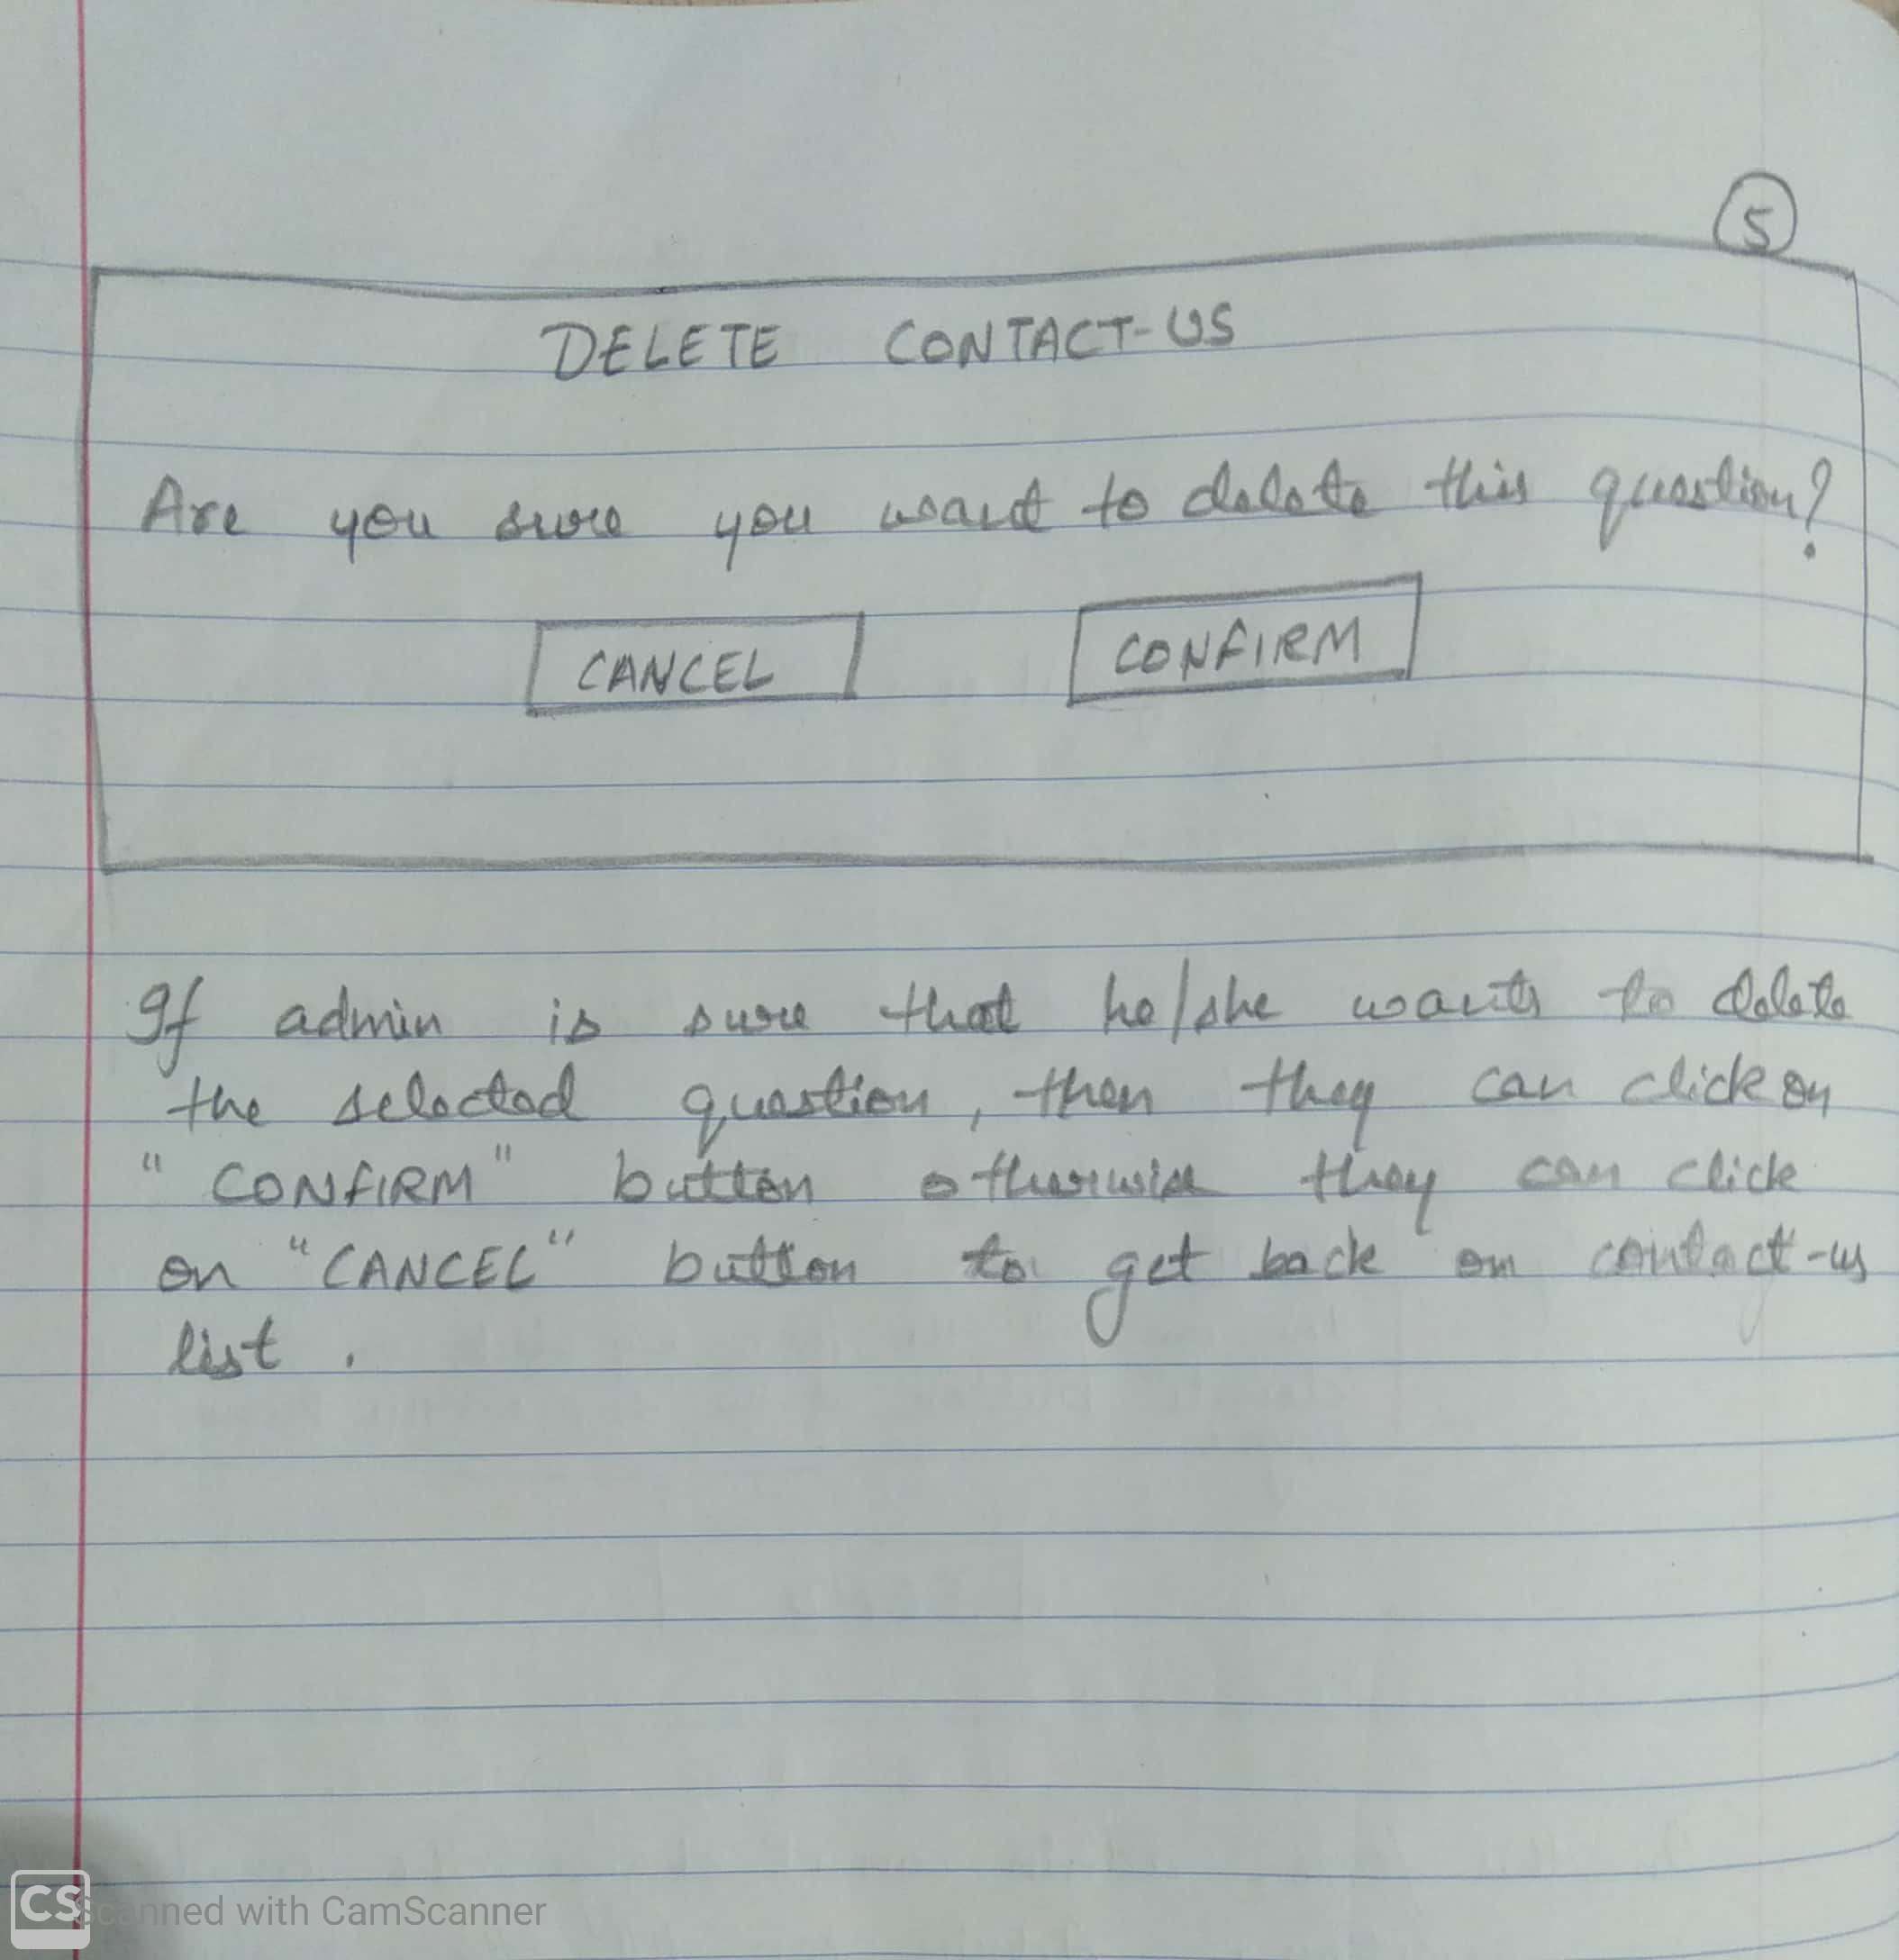 5
DELETE CONTACT-US
Are you sure you want to delete this question?
CANCEL CONFIRM
If admin is sure that he/she wants to delete
the selected question, then they can click on
"CONFIRM" button otherwise they can click
on "CANCEL" button to get back on contact-us
list.
CS Scanned with CamScanner